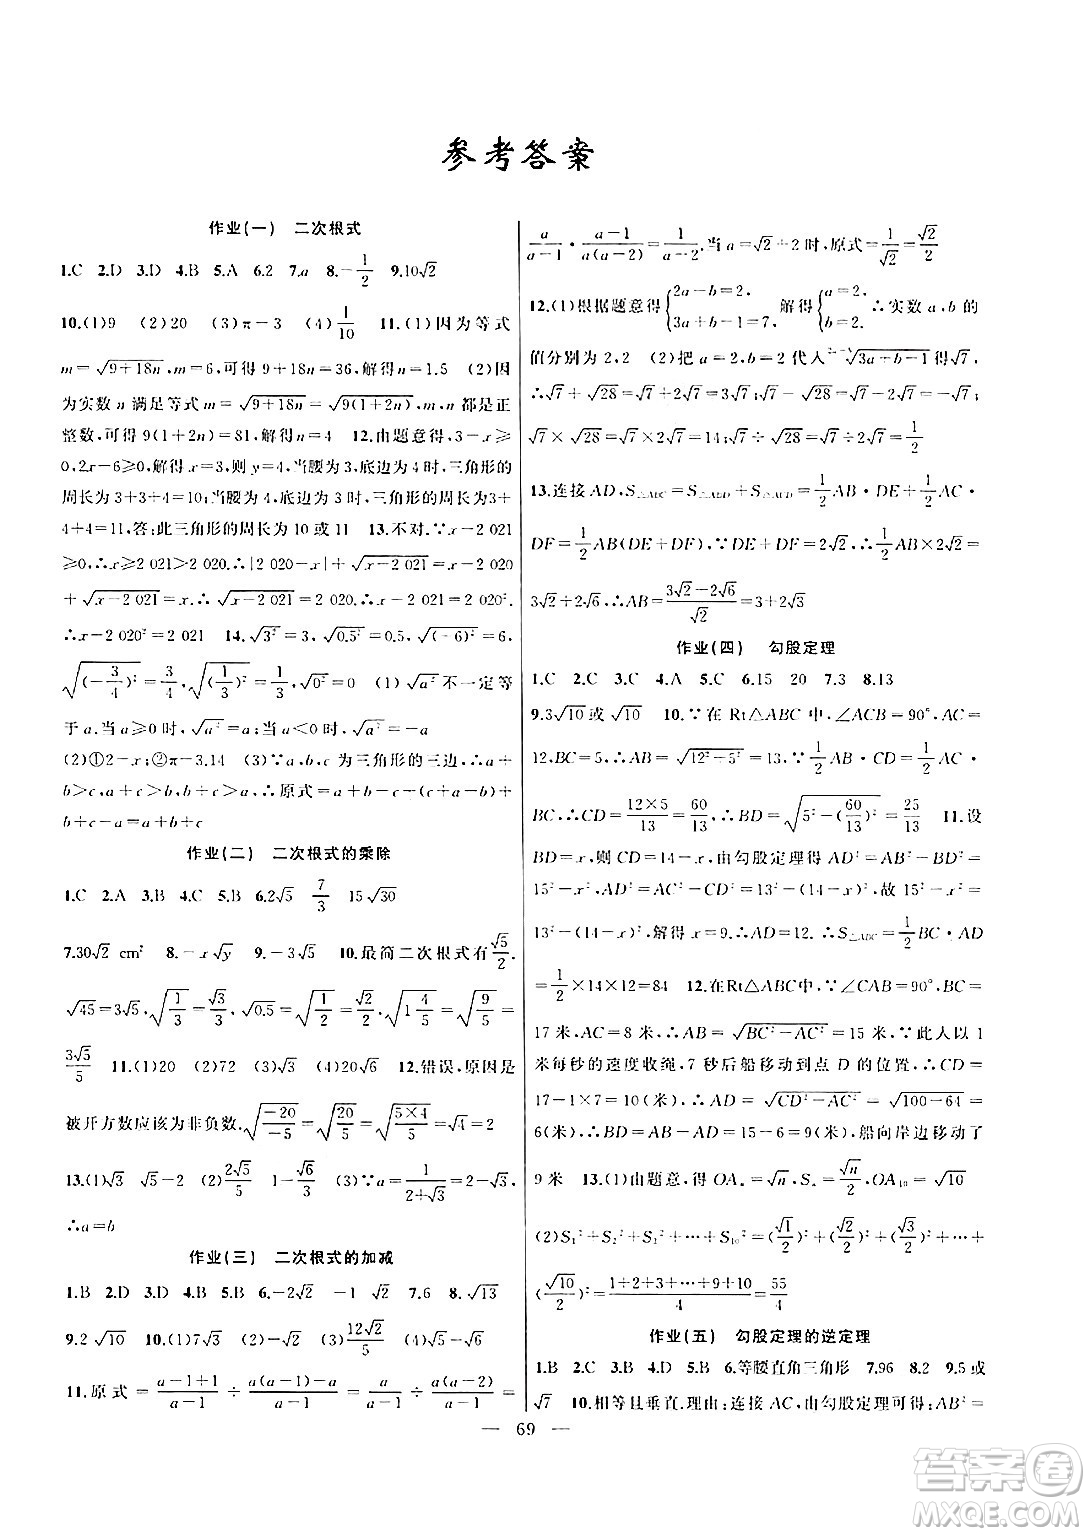 参考答案
作业(一)　二次根式
1.C　2.D　3.D　4.B　5.A　6.2　7.a　8.-1/2　9.10√2
10.(1)9　(2)20　(3)π-3　(4)1/10　11.(1)因为等式
m=√(9+18n),m=6,可得 9+18n=36,解得n=1.5　(2)因
为实数 n 满足等式 m=√(9+18n)=√(9(1+2n)),m,n 都是正
整数,可得 9(1+2n)=81,解得n=4　12.由题意得,3-x≥
0,2x-6≥0,解得 x=3,则 y=4;当腰为 3,底边为 4 时,三角形的
周长为 3+3+4=10;当腰为 4,底边为 3 时,三角形的周长为 3+
4+4=11,答:此三角形的周长为 10 或 11　13.不对.∵x-2 021
≥0,∴x≥2 021>2 020.∴|2 020-x|+√(x-2 021)=x-2 020
+√(x-2 021)=x.∴√(x-2 021)=2 020.∴x-2 021=2 020².
∴x-2 020²=2 021　14.√3²=3,√0.5²=0.5,√(-6)²=6,
√(-3/4)²=3/4,√(1/3)²=1/3,√0²=0　(1)√a²不一定等
于 a.当 a≥0 时,√a²=a;当 a<0 时,√a²=-a
(2)①2-x;②π-3.14　(3)∵a,b,c 为三角形的三边,∴a+
b>c,a+c>b,b+c>a,∴原式=a+b-c+c+a-b+
b+c-a=a+b+c
作业(二)　二次根式的乘除
1.C　2.A　3.B　4.C　5.B　6.2√5　7/3　15√30
7.30√2 cm²　8.-x√y　9.-3√5　10.最简二次根式有√5/2.
√45=3√5,√(1/3)=√3/3,√0.5=√(1/2)=√2/2,√(1 4/5)=√(9/5)=
3√5/5　11.(1)20　(2)72　(3)√3　(4)1　12.错误,原因是
被开方数应该为非负数.√(-20/-5)=√(20/5)=√(5×4/5)=√4=2
13.(1)√3　√5　(2)2√5/5　1-√6/3　(3)∵a=1/(2+√3)=2-√3,
∴a=b
作业(三)　二次根式的加减
1.B　2.D　3.D　4.B　5.B　6.-√2　-1　√2　7.6　8.√13
9.2√10　10.(1)7√3　(2)-√2　(3)12√2/5　(4)9
11.原式=(a-1+1)/(a-1)÷(a(a-1)-a)/(a-1)=a/(a-1)÷a(a-2)/(a-1)=
a/(a-1)·(a-1)/(a(a-2))=1/(a-2),当 a=√2+2时,原式=1/√2=√2/2
12.(1)根据题意得{2a-b=2, 3a+b-1=7,　解得{a=2, b=2. ∴实数 a,b 的
值分别为 2,2　(2)把 a=2,b=2 代入√(3a+b-1)得√7,
∴√7+√28=√7+2√7=3√7;√7-√28=√7-2√7=-√7;
√7×√28=√7×2√7=14;√7÷√28=√7÷2√7=1/2
13.连接 AD,S△ABC=S△ABD+S△ACD=1/2 AB·DE+1/2 AC·
DF=1/2 AB(DE+DF),∵DE+DF=2√2,∴1/2 AB×2√2=
3√2+2√6,∴AB=(3√2+2√6)/√2=3+2√3
作业(四)　勾股定理
1.C　2.C　3.C　4.A　5.C　6.15　20　7.3　8.13
9.3√10或√10　10.∵在 Rt△ABC 中,∠ACB=90°,AC=
12,BC=5,∴AB=√(12²+5²)=13.∵1/2 AB·CD=1/2 AC·
BC,∴CD=12×5/13=60/13,∴BD=√(5²-(60/13)²)=25/13　11.设
BD=x,则 CD=14-x,由勾股定理得 AD²=AB²-BD²=
15²-x²,AD²=AC²-CD²=13²-(14-x)²,故 15²-x²=
13²-(14-x)²,解得 x=9.∴AD=12.∴S△ABC=1/2 BC·AD
=1/2×14×12=84　12.在Rt△ABC中,∵∠CAB=90°,BC=
17 米,AC=8 米,∴AB=√(BC²-AC²)=15 米,∵此人以 1
米每秒的速度收绳,7 秒后船移动到点 D 的位置,∴CD=
17-1×7=10(米),∴AD=√(CD²-AC²)=√(100-64)=
6(米),∴BD=AB-AD=15-6=9(米),船向岸边移动了
9 米　13.(1)由题意,得 OAₙ=√n,Sₙ=√n/2,OA₁₀=√10
(2)S₁²+S₂²+S₃²+…+S₁₀²=(√1/2)²+(√2/2)²+(√3/2)²+…+
(√10/2)²=(1+2+3+…+9+10)/4=55/4
作业(五)　勾股定理的逆定理
1.B　2.C　3.B　4.D　5.B　6.等腰直角三角形　7.96　8.2　9.5或
√7　10.相等且垂直.理由:连接AC,由勾股定理可得:AB²=
— 69 —
答案圈
MXQE.COM